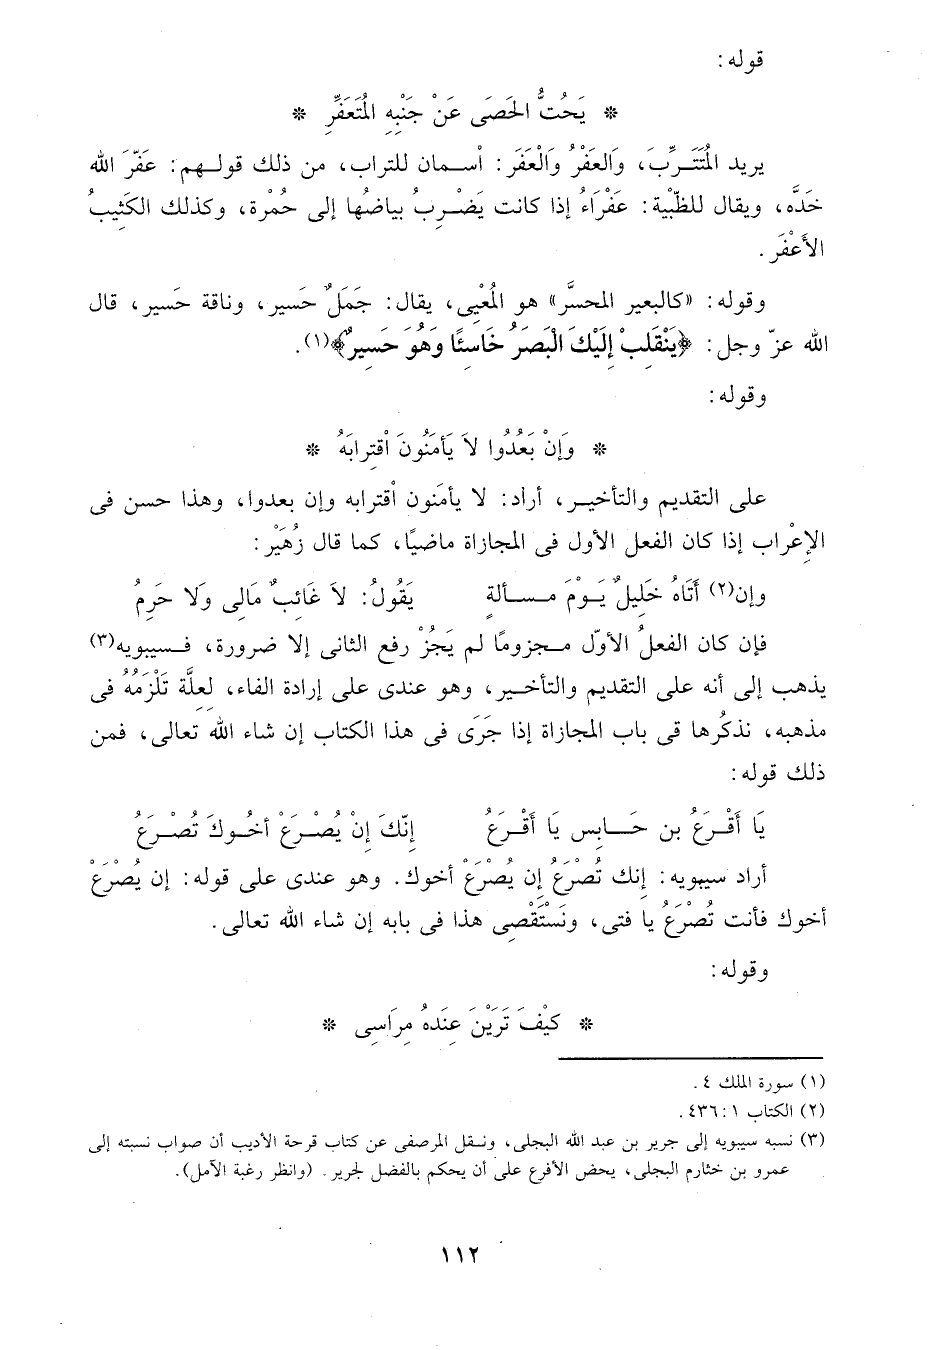 قوله:
* يَحُتُّ الحَصَى عَنْ جَنْبِهِ المُتَعَفِّرِ *
يريد المُتَتَرِّبَ، والعَفْرُ وَالْعَفَر: أسمان للتراب، من ذلك قولهم: عَفّرَ الله
خَدَّه، ويقال للظّبْية: عَفْرَاءُ إذا كانت يَضْرِبُ بياضُها إلى حُمْرة، وكذلك الكَثِيبُ
الأَعْفَر.
وقوله: «كالبعير المحسَّر» هو المُعْيِى، يقال: جَمَلٌ حَسير، وناقة حَسير، قال
الله عزّ وجل: ﴿يَنْقَلِبْ إِلَيْكَ الْبَصَرُ خَاسِئًا وَهُوَ حَسِيرٌ﴾(١).
وقوله:
* وَإِنْ بَعُدُوا لاَ يَأمَنُونَ أقْتِرابَهُ *
على التقديم والتأخير، أراد: لا يأمَنون أقترابه وإن بعدوا، وهذا حسن فى
الإِعْراب إذا كان الفعل الأول فى المجازاة ماضيًا، كما قال زُهَيْر:
وإن(٢) أَتَاهُ خَلِيلٌ يَوْمَ مسألةٍ يَقُولُ: لاَ غَائِبٌ مَالِى وَلاَ حَرِمُ
فإن كان الفعلُ الأوّل مجزومًا لم يَجُزْ رفع الثانى إلا ضرورة، فسيبويه(٣)
يذهب إلى أنه على التقديم والتأخير، وهو عندى على إرادة الفاء، لِعلَّة تَلْزَمُهُ فى
مذهبه، نذكُرها فى باب المجازاة إذا جَرَى فى هذا الكتاب إن شاء الله تعالى، فمن
ذلك قوله:
يَا أقْرَعُ بن حَابِس يَا أقْرَعُ إنّكَ إنْ يُصْرَعْ أخُوكَ تُصْرَعُ
أراد سيبويه: إنك تُصْرَعُ إن يُصْرَعْ أخوك. وهو عندى على قوله: إن يُصْرَعْ
أخوك فأنت تُصْرَعُ يا فتى، ونَسْتَقْصِى هذا فى بابه إن شاء الله تعالى.
وقوله:
* كَيْفَ تَرَيْنَ عِنَدهُ مِرَاسِى *
(١) سورة الملك ٤.
(٢) الكتاب ١: ٤٣٦.
(٣) نسبه سيبويه إلى جرير بن عبد الله البجلى، ونقل المرصفى عن كتاب قرحة الأديب أن صواب نسبته إلى
عمرو بن خثارم البجلى، يحض الأقرع على أن يحكم بالفضل لجرير. (وانظر رغبة الآمل).
١١٢